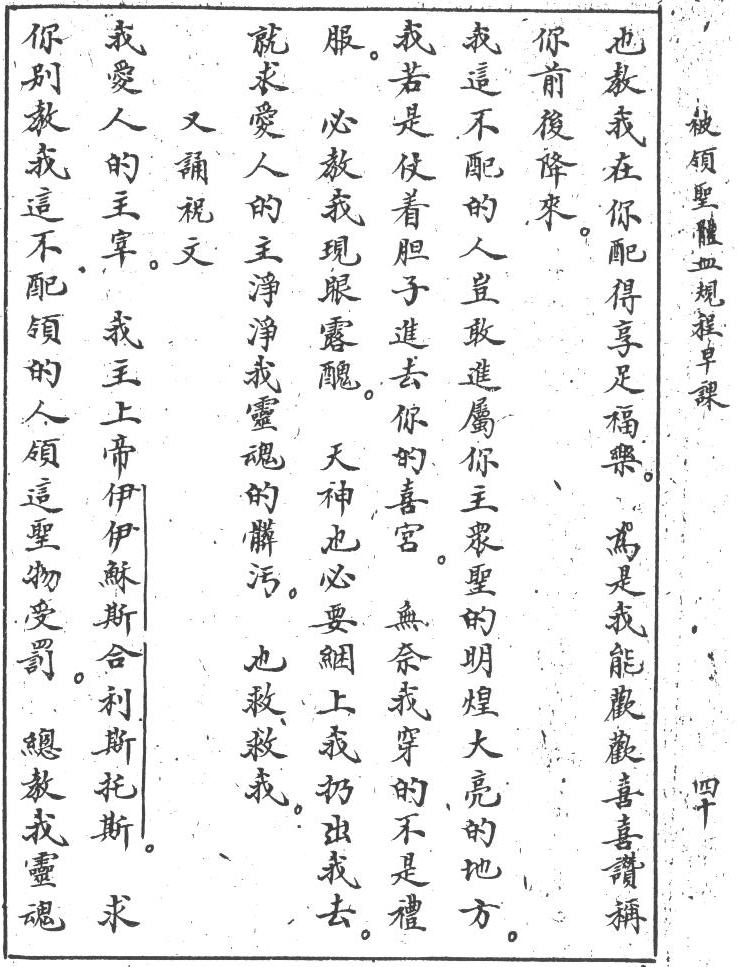 被領聖體血規程早課 四十
也教我在你配得享足福樂。 為是我能歡歡喜喜讚稱
你前後降來。
我這不配的人豈敢進屬你主眾聖的明煌大亮的地方。
我若是仗着胆子進去你的喜宮。 無奈我穿的不是禮
服。 必教我現眼露醜。 天神也必要綑上我扔出我去。
就求愛人的主淨淨我靈魂的髒污。 也救救我。
又誦祝文
我愛人的主宰。 我主上帝伊伊穌斯合利斯托斯。 求
你別教我這不配領的人領這聖物受罰。 總教我靈魂